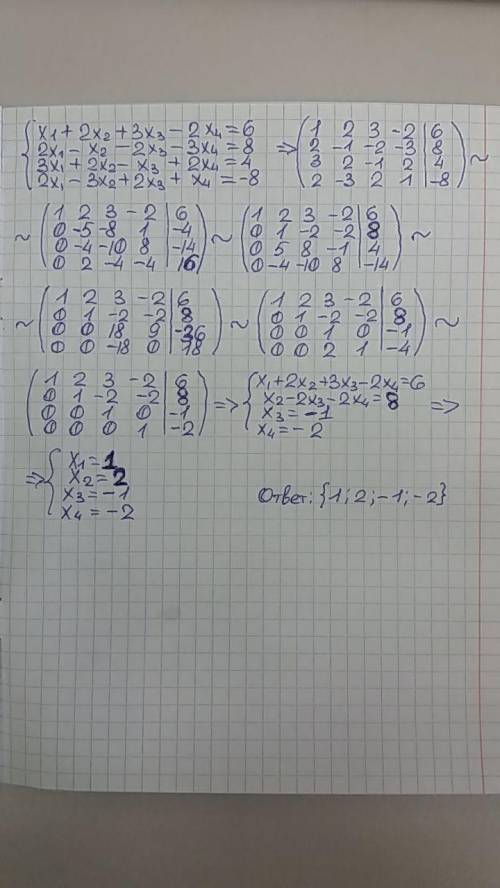 { x₁ + 2x₂ + 3x₃ - 2x₄ = 6
2x₁ - x₂ - 2x₃ - 3x₄ = 8
3x₁ + 2x₂ - x₃ + 2x₄ = 4
2x₁ - 3x₂ + 2x₃ + x₄ = -8 ⇒ ( 1 2 3 -2 | 6
2 -1 -2 -3 | 8
3 2 -1 2 | 4
2 -3 2 1 | -8 ) ~
~ ( 1 2 3 -2 | 6
0 -5 -8 1 | -4
0 -4 -10 8 | -14
0 2 -4 -4 | 16 ) ~ ( 1 2 3 -2 | 6
0 1 -2 -2 | 8
0 5 8 -1 | 4
0 -4 -10 8 | -14 ) ~
~ ( 1 2 3 -2 | 6
0 1 -2 -2 | 8
0 0 18 9 | -36
0 0 -18 0 | 18 ) ~ ( 1 2 3 -2 | 6
0 1 -2 -2 | 8
0 0 1 0 | -1
0 0 2 1 | -4 ) ~
( 1 2 3 -2 | 6
0 1 -2 -2 | 8
0 0 1 0 | -1
0 0 0 1 | -2 ) ⇒ { x₁ + 2x₂ + 3x₃ - 2x₄ = 6
x₂ - 2x₃ - 2x₄ = 8
x₃ = -1
x₄ = -2 ⇒
⇒ { x₁ = 1
x₂ = 2
x₃ = -1
x₄ = -2
Ответ: {1; 2; -1; -2}